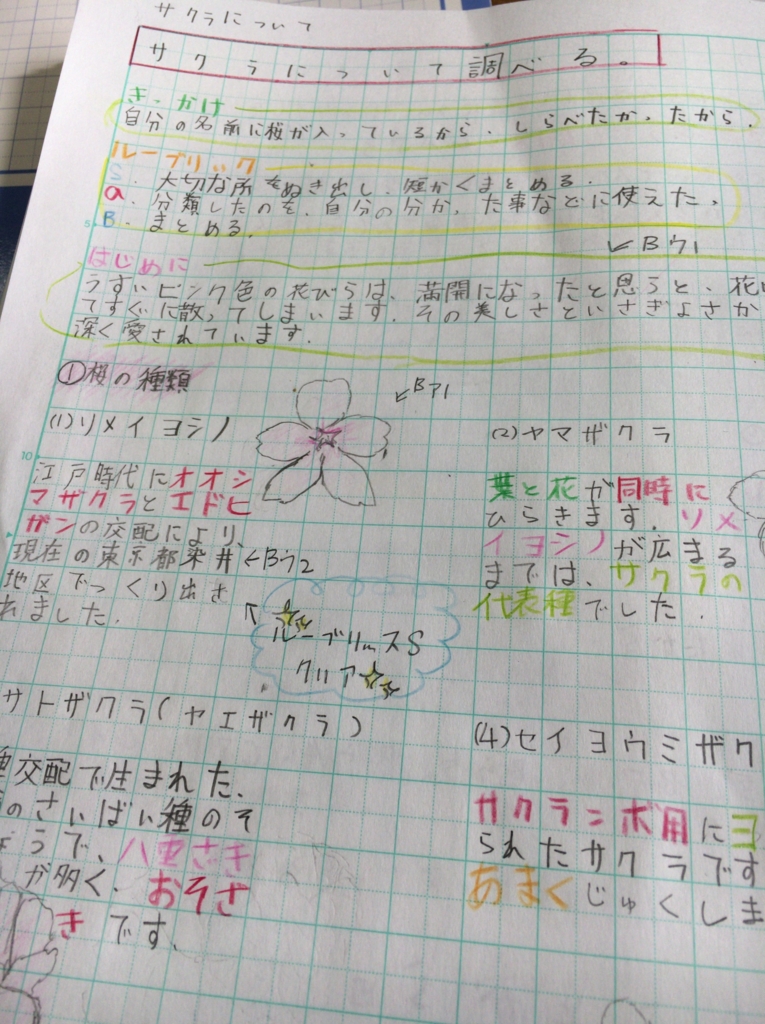 サクラについて
サクラについて調べる。
きっかけ
自分の名前に桜が入っているから、しらべたかったから。
ルーブリック
S. 大切な所をぬき出し、短かくまとめる。
a. 分類したのを、自分の分かった事などに使えた。
B. まとめる。
←Bウ1
はじめに
うすいピンク色の花びらは、満開になったと思うと、
てすぐに散ってしまいます。その美しさといさぎよさか
深く愛されています。
①桜の種類
←Bア1
(1)ソメイヨシノ
江戸時代にオオシ
マザクラとエドヒ
ガンの交配により、
現在の東京都染井←Bウ2
地区でつくり出さ
れました。
↑
ルーブリックS
クリア
(2)ヤマザクラ
葉と花が同時に
ひらきます。ソメ
イヨシノが広まる
までは、サクラの
代表種でした。
サトザクラ(ヤエザクラ)
交配で生まれた、
のさいばい種のそ
うで、八重ざき
が多く、おそざ
きです。
(4)セイヨウミザク
サクランボ用にヨ
られたサクラです
あまくじゅくしま